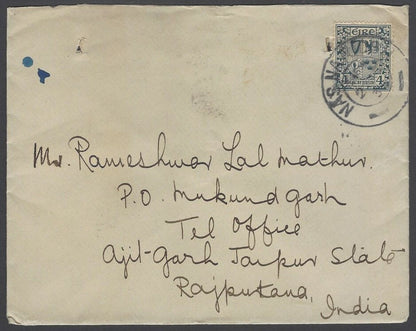 ÉIRE
NÁS NA
Mr. Rameshwar Lal Mathur.
P.O. Mukundgarh
Tel Office
Ajit-Garh Jaipur State
Rajputana,
India